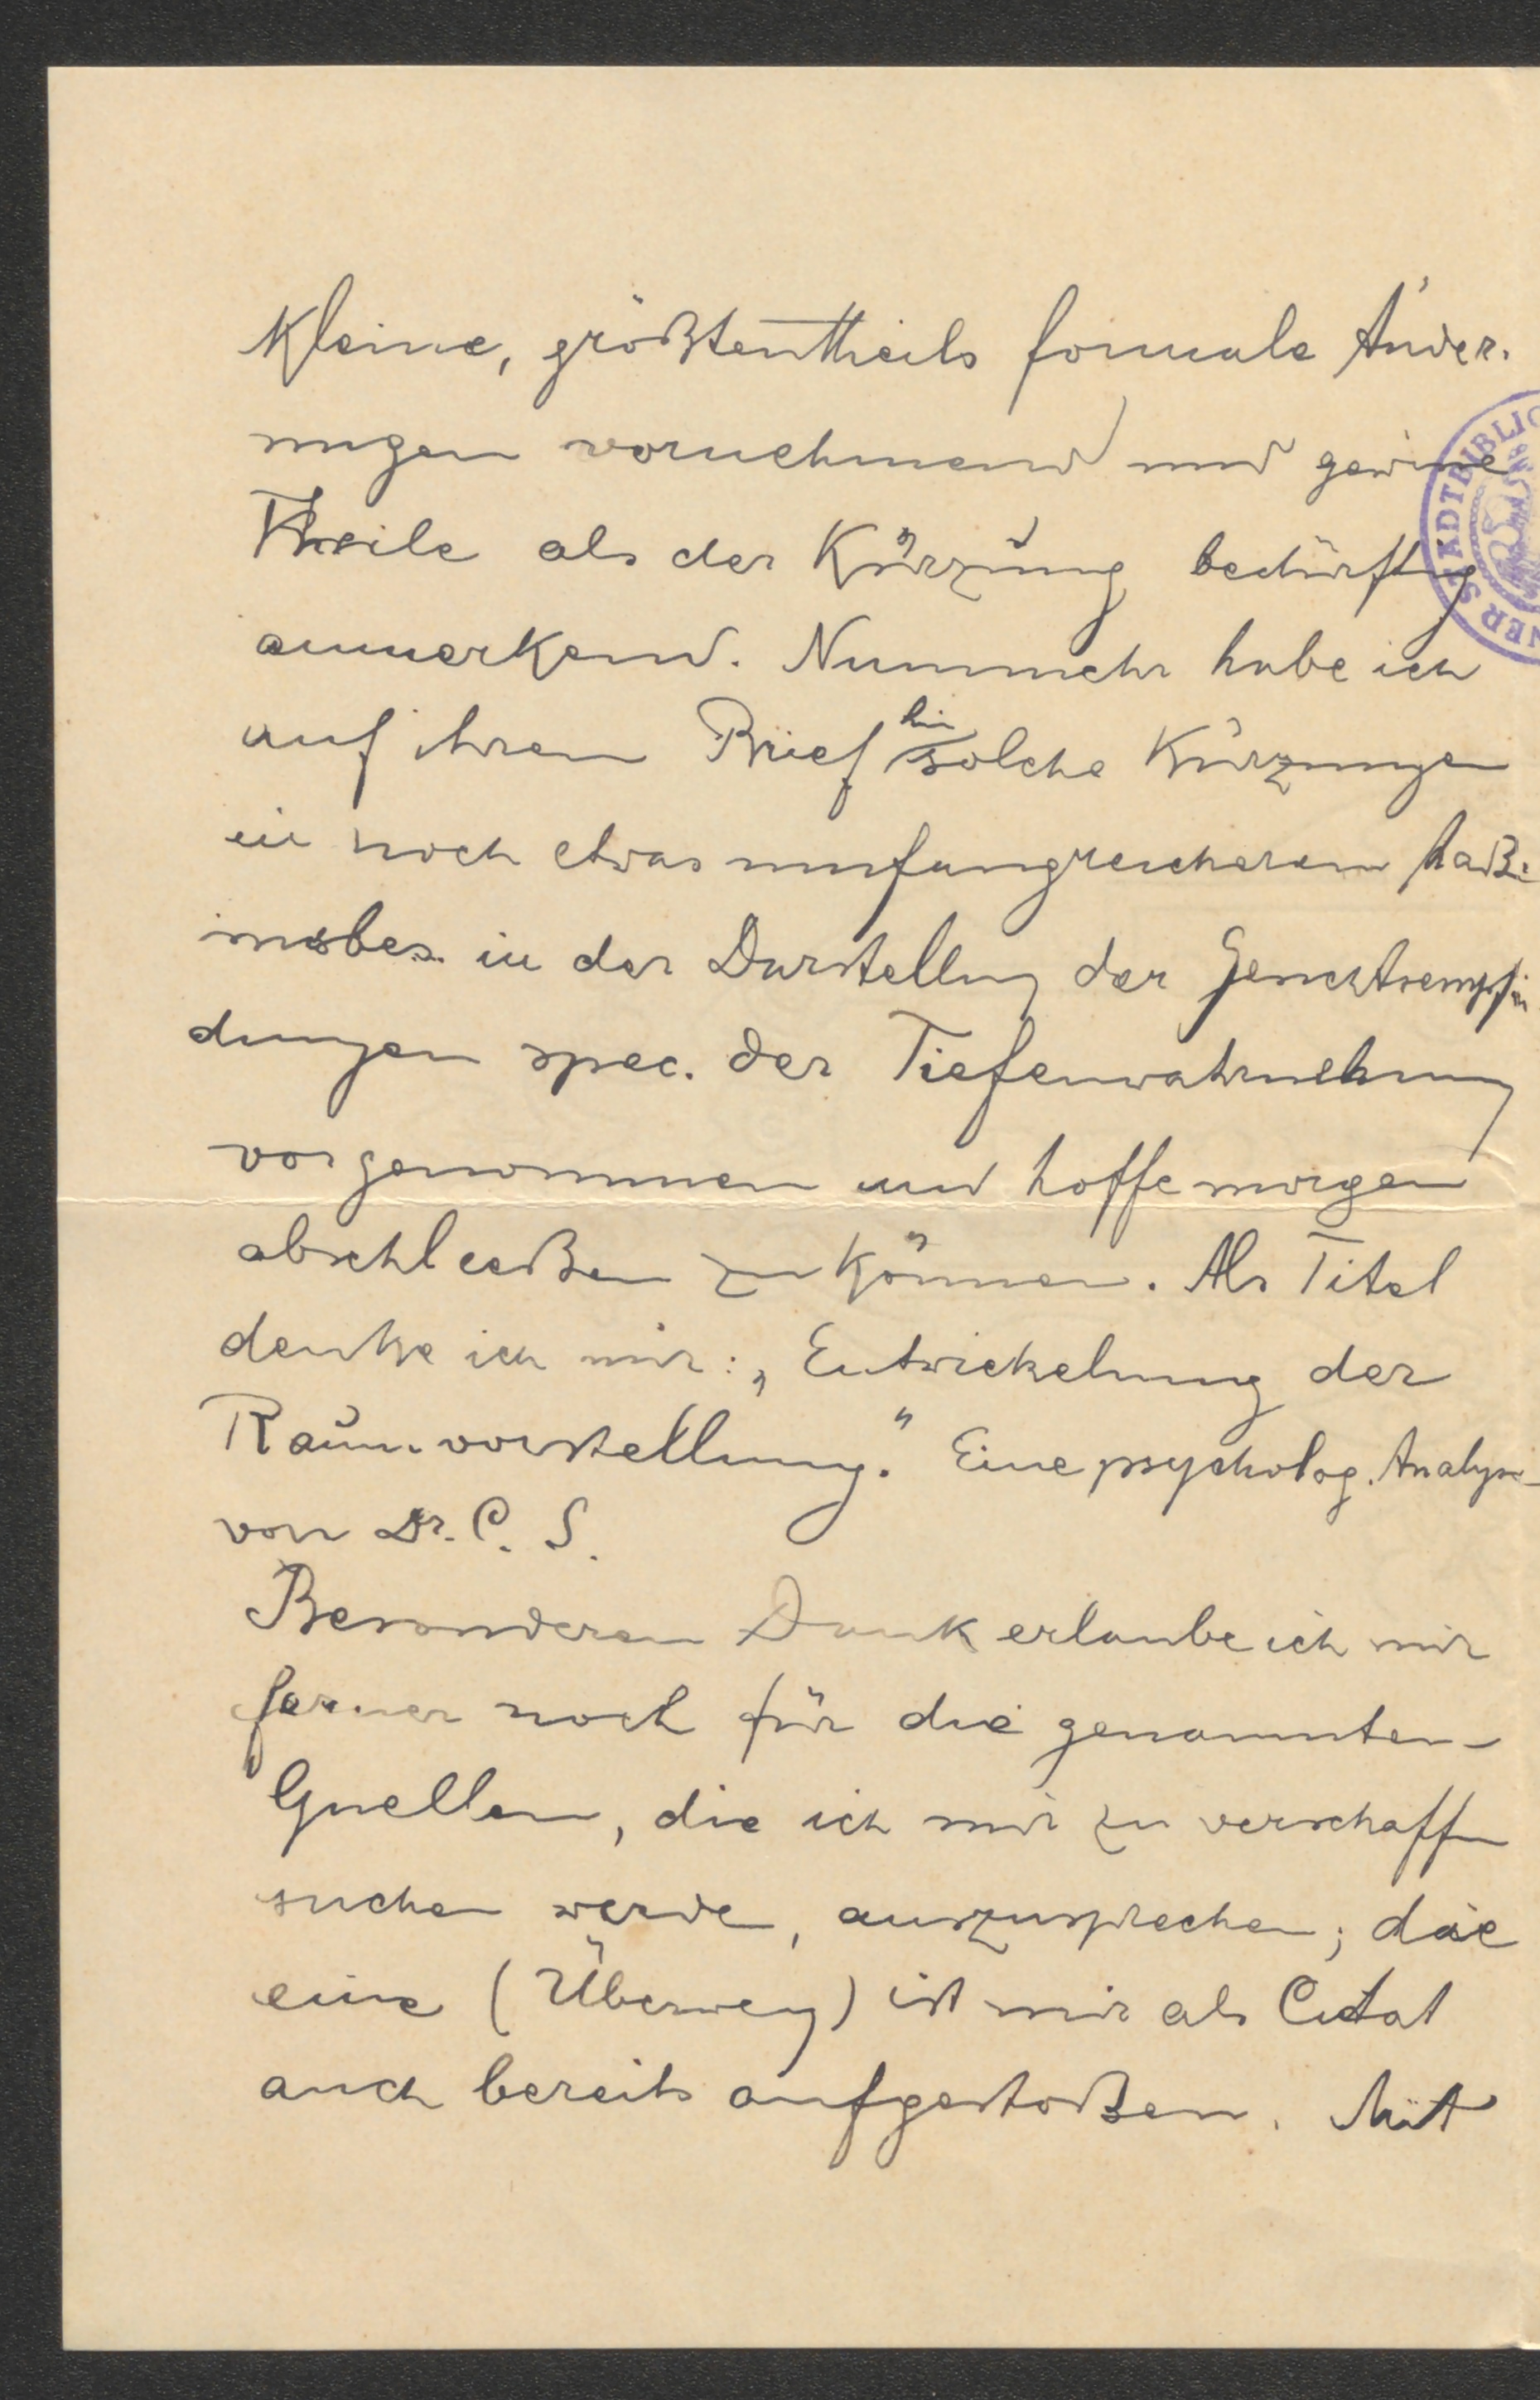 kleine, größtentheils formale Änder-
ungen vornehmend und gewisse
Theile als der Kürzung bedürftig
anmerkend. Nunmehr habe ich
auf ihren Brief hin solche Kürzungen
in noch etwas umfangreicherem Maße
insbes. in der Darstellung der Gesichtsempfin
dungen spec. der Tiefenwahrnehmung
vorgenommen und hoffe morgen
abschließen zu können. Als Titel
denke ich mir: „Entwickelung der
Raumvorstellung." Eine psycholog. Analyse
von Dr. C. S.
Besonderen Dank erlaube ich mir
ferner noch für die genannten
Quellen, die ich mir zu verschaffen
suchen werde, auszusprechen; die
eine (Überweg) ist mir als Citat
auch bereits aufgestoßen. Mit